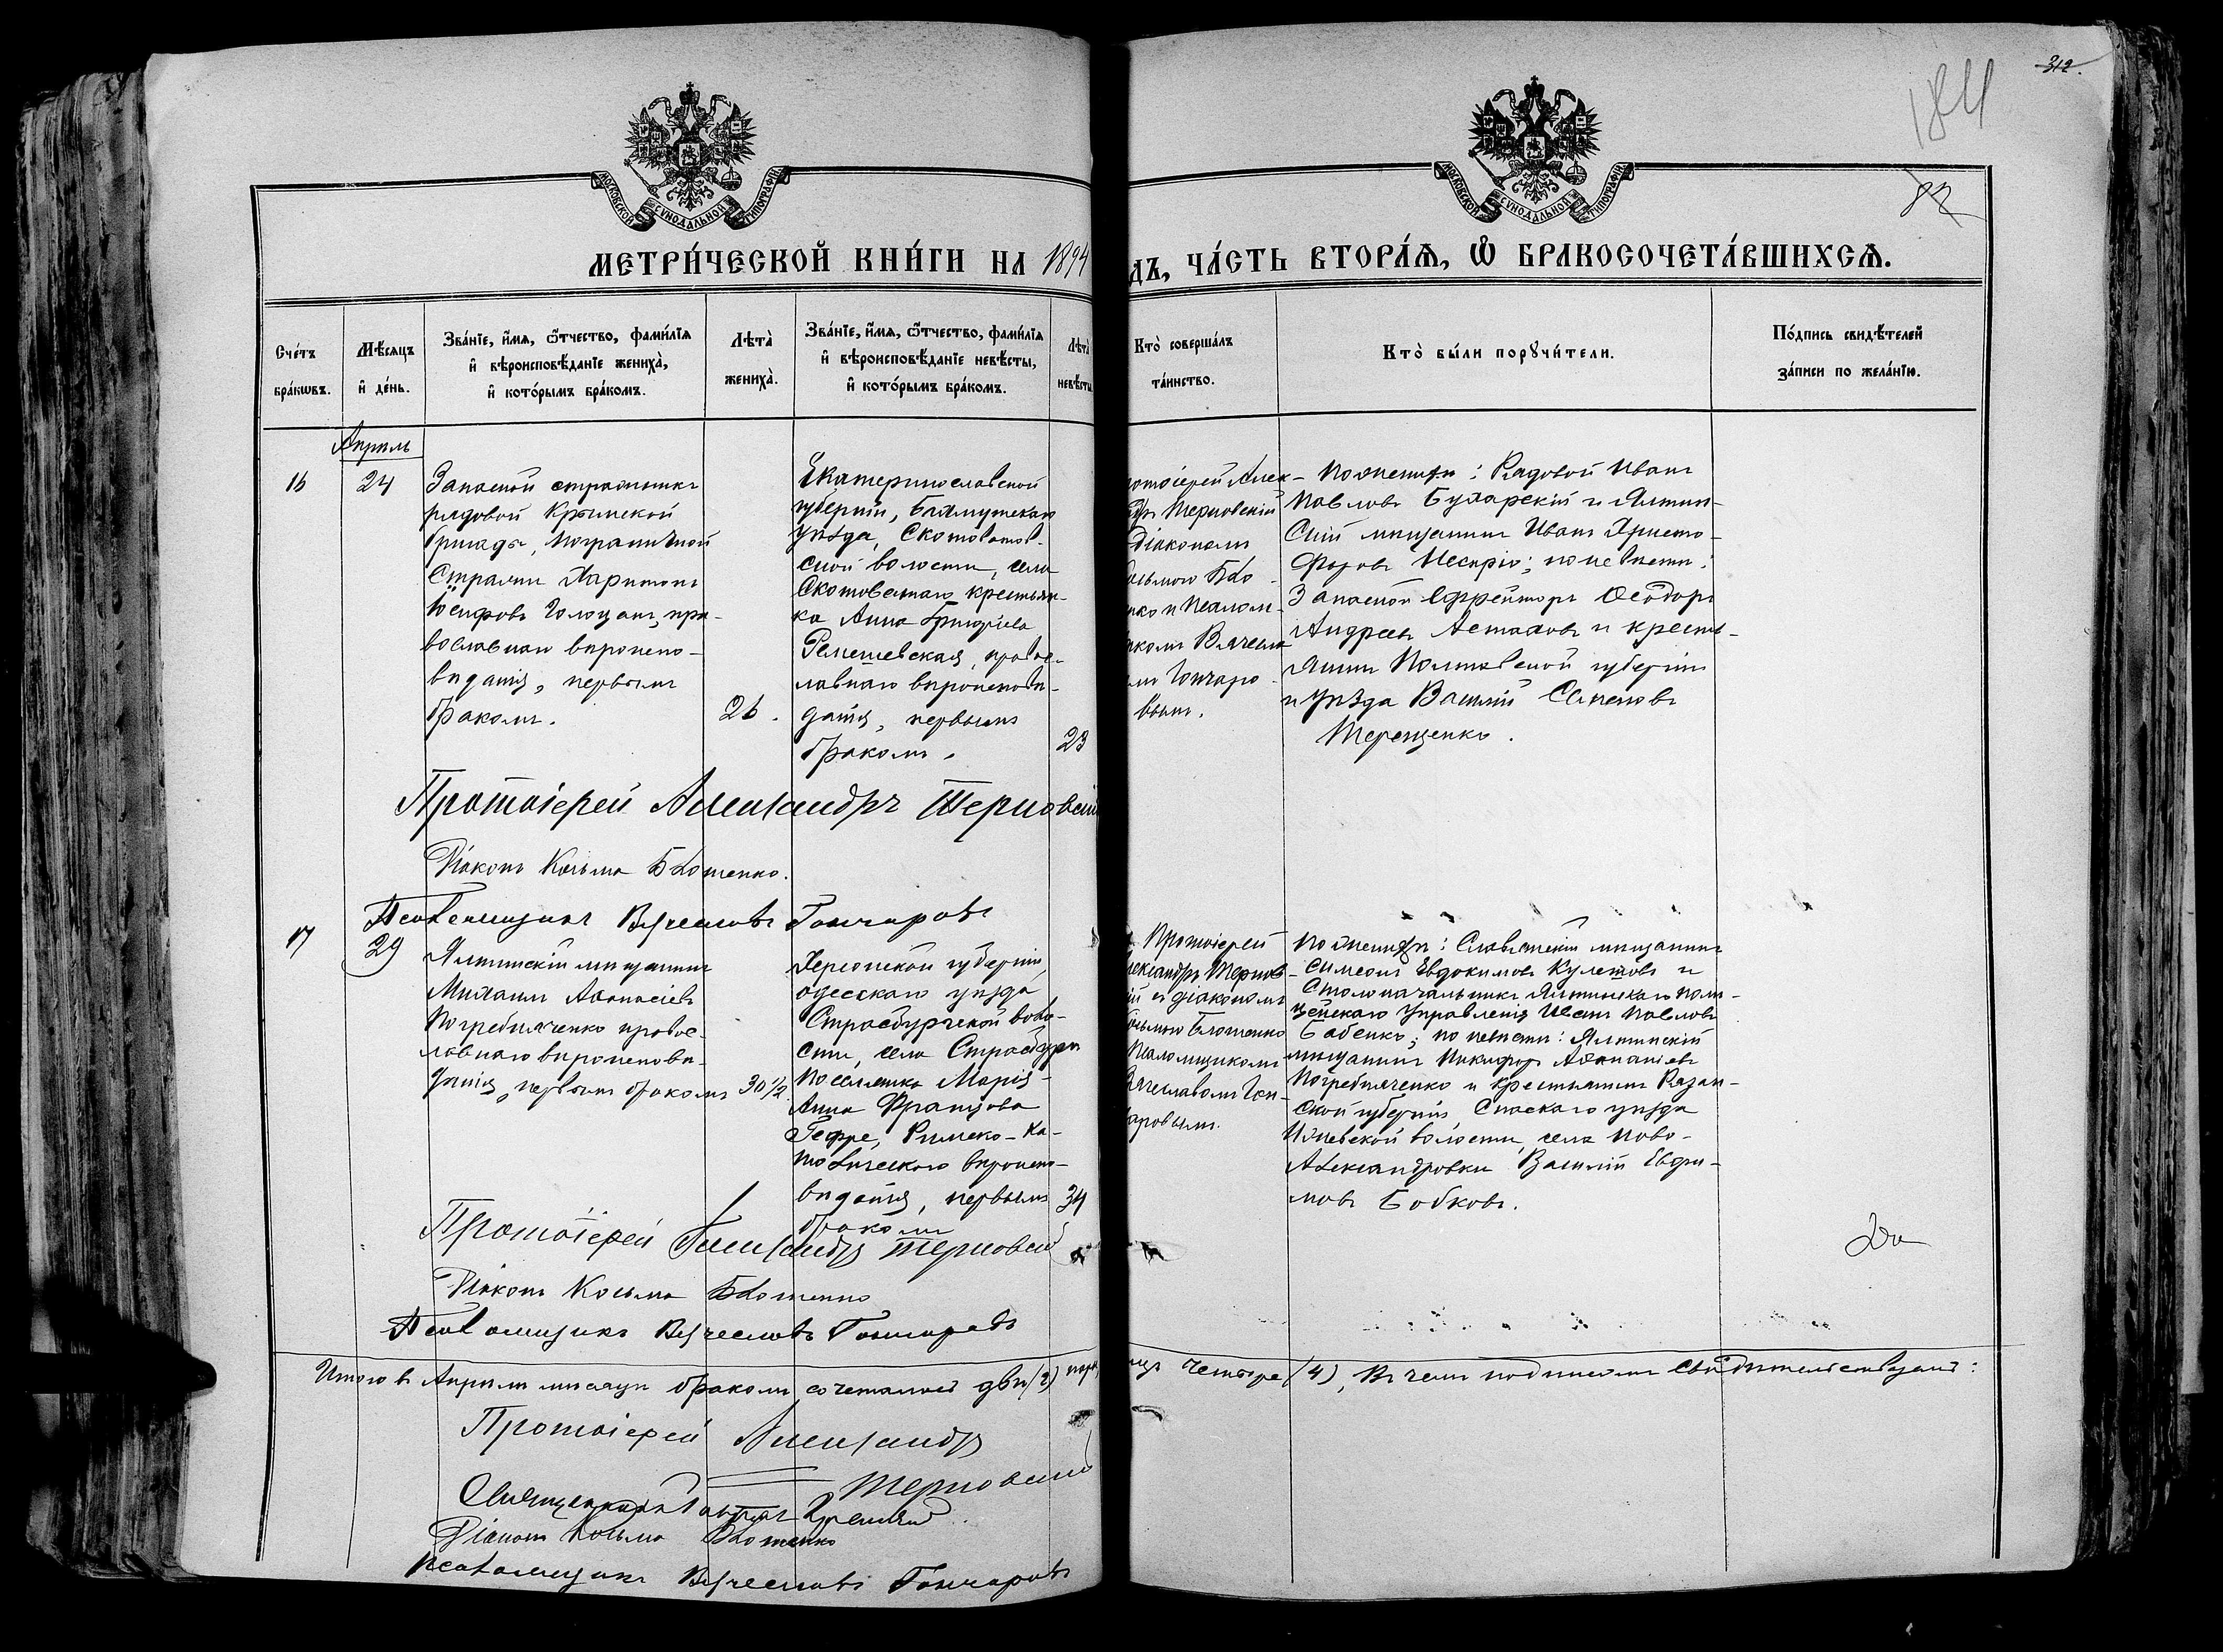 312.
184
82
МОСКОВСКОЙ СѴНОДАЛЬНОЙ ТИПОГРАФІИ
МОСКОВСКОЙ СѴНОДАЛЬНОЙ ТИПОГРАФІИ
МЕТРИ́ЧЕСКОЙ КНИ́ГИ НА 1894
ДЪ, ЧА́СТЬ ВТОРА́Ѧ, Ѽ БРАКОСОЧЕТА́ВШИХСѦ.
Сче́тъ
бра́кѡвъ.
Мѣ́сяцъ
и҆ де́нь.
Зва́нїе, и҆́мя, ѻ҆́тчество, фами́лїя
и҆ вѣроисповѣ́данїе жениха̀,
и҆ кото́рымъ бра́комъ.
Лѣта̀
жениха̀.
Зва́нїе, и҆́мя, ѻ҆́тчество, фами́лїя
и҆ вѣроисповѣ́данїе невѣ́сты,
и҆ кото́рымъ бра́комъ.
Лѣта̀
невѣ́сты
Кто̀ соверша́лъ
та́инство.
Кто̀ бы́ли порꙋчи́тели.
По́дпись свидѣ́телей
за́писи по жела́нїю.
Апрѣль
16
24
Запасной стражникъ
рядовой Крымской
бригады, пограничной
Стражи Харитонъ
Іосифовъ Голоцанъ, пра-
вославнаго вѣроиспо-
вѣданія, первымъ
бракомъ.
26.
Екатеринославской
губерніи, Бахмутскаго
уѣзда, Скотоватов-
ской волости, села
Скотоватаго крестьян-
ка Анна Григоріева
Ремешевская, правос-
лавнаго вѣроисповѣ-
данія, первымъ
бракомъ.
23
ротоіерей Алек-
ндръ Терновскій
діакономъ
Косьмою Бло-
нко и псалом-
икомъ Вячесла
мъ Гончаро-
вымъ.
По женихѣ: Рядовой Иванъ
Павловъ Бухарскій и Ялтин-
скій мѣщанинъ Иванъ Христо-
форовъ; по невѣстѣ:
Запасной Ефрейторъ Ѳеодоръ
Андреевъ Астаховъ и кресть-
янинъ Полтавской губерніи
и уѣзда Василій Семеновъ
Терещенко.
Протоіерей Александръ Терновскій
Діаконъ Косьма Блошенко.
Псаломщикъ Вячеславъ Гончаровъ
17
29
Ялтинскій мѣщанинъ
Михаилъ Аѳанасіевъ
Погребняченко правос-
лавнаго вѣроисповѣ-
данія, первымъ бракомъ
30 1/2
Херсонской губерніи,
одесскаго уѣзда
Страсбургской воло-
сти, села Страсбургъ
поселянка Марія-
Анна Францова
Гефре, Римско-Ка-
толическаго вѣроиспо-
вѣданія, первымъ
бракомъ
34
Протоіерей
лександръ Тернов-
ій и діакономъ
Косьмою Блошенко
псаломщикомъ
Вячеславомъ Гон-
чаровымъ.
По женихѣ: Славянскій мѣщанинъ
Симеонъ Евдокимовъ Кулешовъ и
Столоначальникъ Ялтинскаго поли-
цейскаго Управленія Иванъ Павловъ
Бабенко; по невѣстѣ: Ялтинскій
мѣщанинъ Никифоръ Аѳанасіевъ
Погребняченко и крестьянинъ Рязан-
ской губерніи, Спасскаго уѣзда
Ижевской волости, села Ново-
Александровки Василій Ефи-
мовъ Бобковъ.
Протоіерей Александръ Терновскій
Діаконъ Косьма Блошенко
Псаломщикъ Вячеславъ Гончаровъ
Итого въ Апрѣлѣ мѣсяцѣ бракомъ сочеталось двѣ (2) пары
четыре (4), въ чемъ подписомъ свидѣтельствуемъ:
Протоіерей Александръ
Терновскій
Священникъ
Діаконъ Косьма Блошенко
Псаломщикъ Вячеславъ Гончаровъ